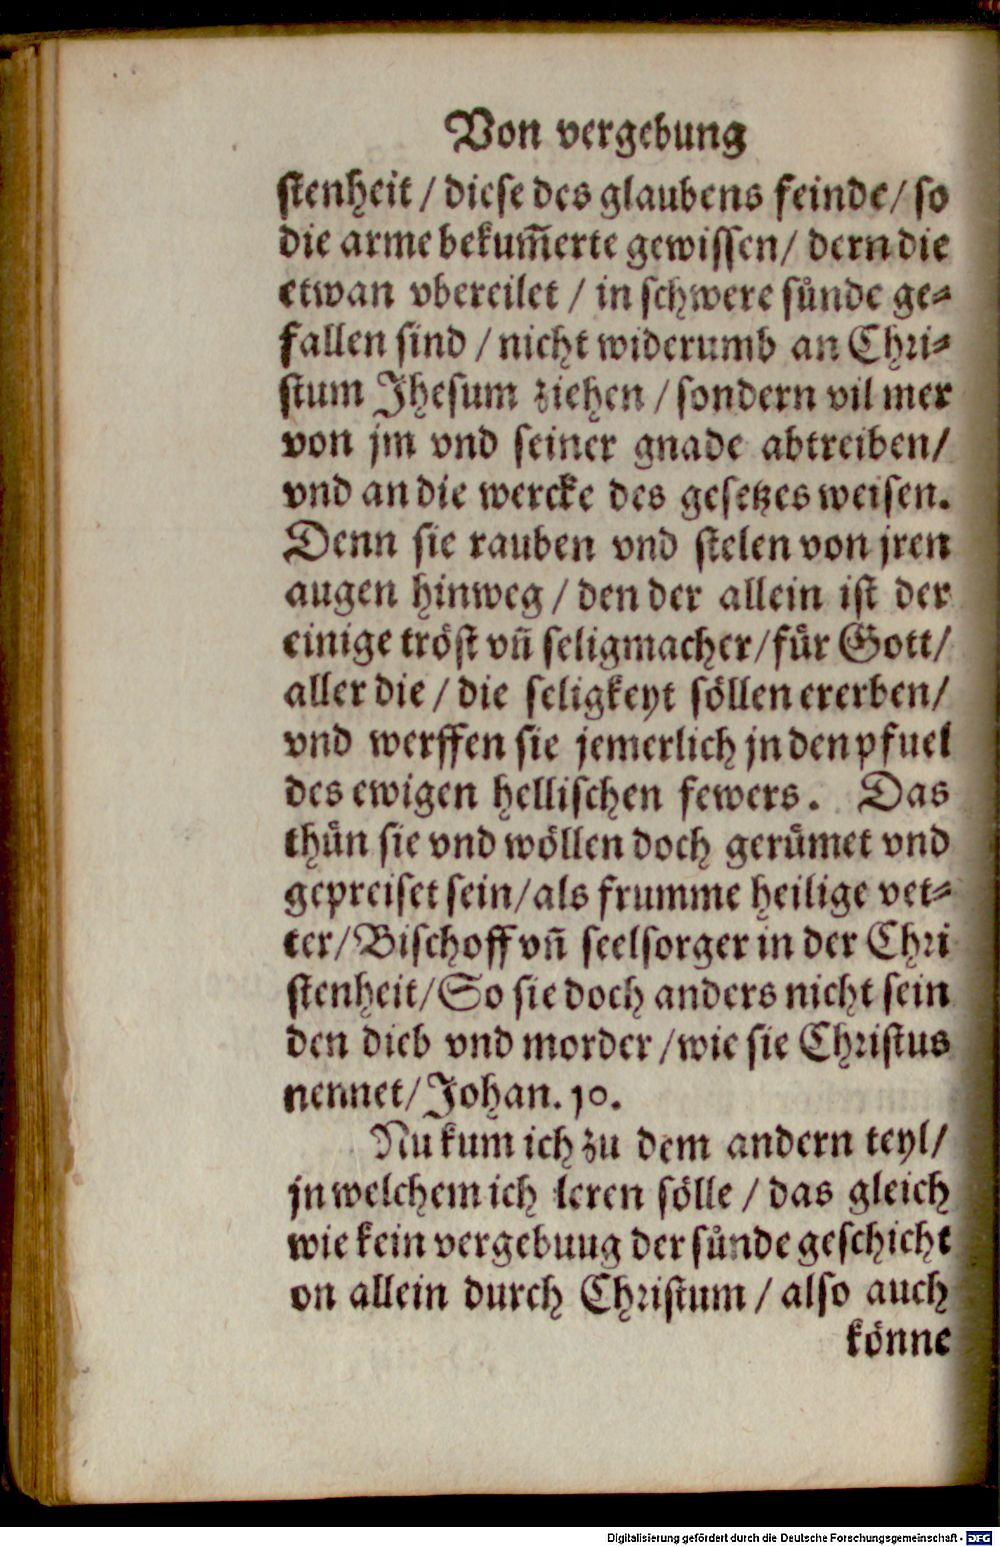 Von vergebung
stenheit / diese des glaubens feinde / so
die arme bekum̃erte gewissen / dern die
etwan vbereilet / in schwere sůnde ge⸗
fallen sind / nicht widerumb an Chri⸗
stum Jhesum ziehen / sondern vil mer
von jm vnd seiner gnade abtreiben /
vnd an die wercke des gesetzes weisen.
Denn sie rauben vnd stelen von jren
augen hinweg / den der allein ist der
einige tröst vñ seligmacher / für Gott /
aller die / die seligkeyt söllen ererben /
vnd werffen sie jemerlich jn den pfuel
des ewigen hellischen fewers. Das
thůn sie vnd wöllen doch gerůmet vnd
gepreiset sein / als frumme heilige vet⸗
ter / Bischoff vñ seelsorger in der Chri
stenheit / So sie doch anders nicht sein
den dieb vnd morder / wie sie Christus
nennet / Johan. 10.
Nu kum ich zu dem andern teyl /
jn welchem ich leren sölle / das gleich
wie kein vergebuug der sůnde geschicht
on allein durch Christum / also auch
könne
Digitalisierung gefördert durch die Deutsche Forschungsgemeinschaft - DFG